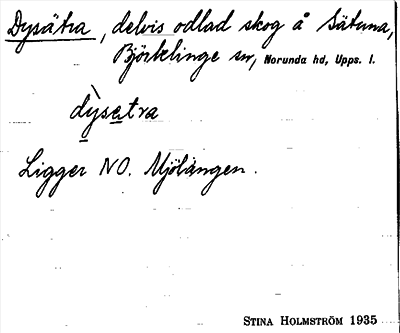 Dysätra, delvis odlad skog å Sätuna,
Björklinge sn, Norunda hd, Upps. l.
dỳsetra
Ligger NO. Mjölängen.
STINA HOLMSTRÖM 1935